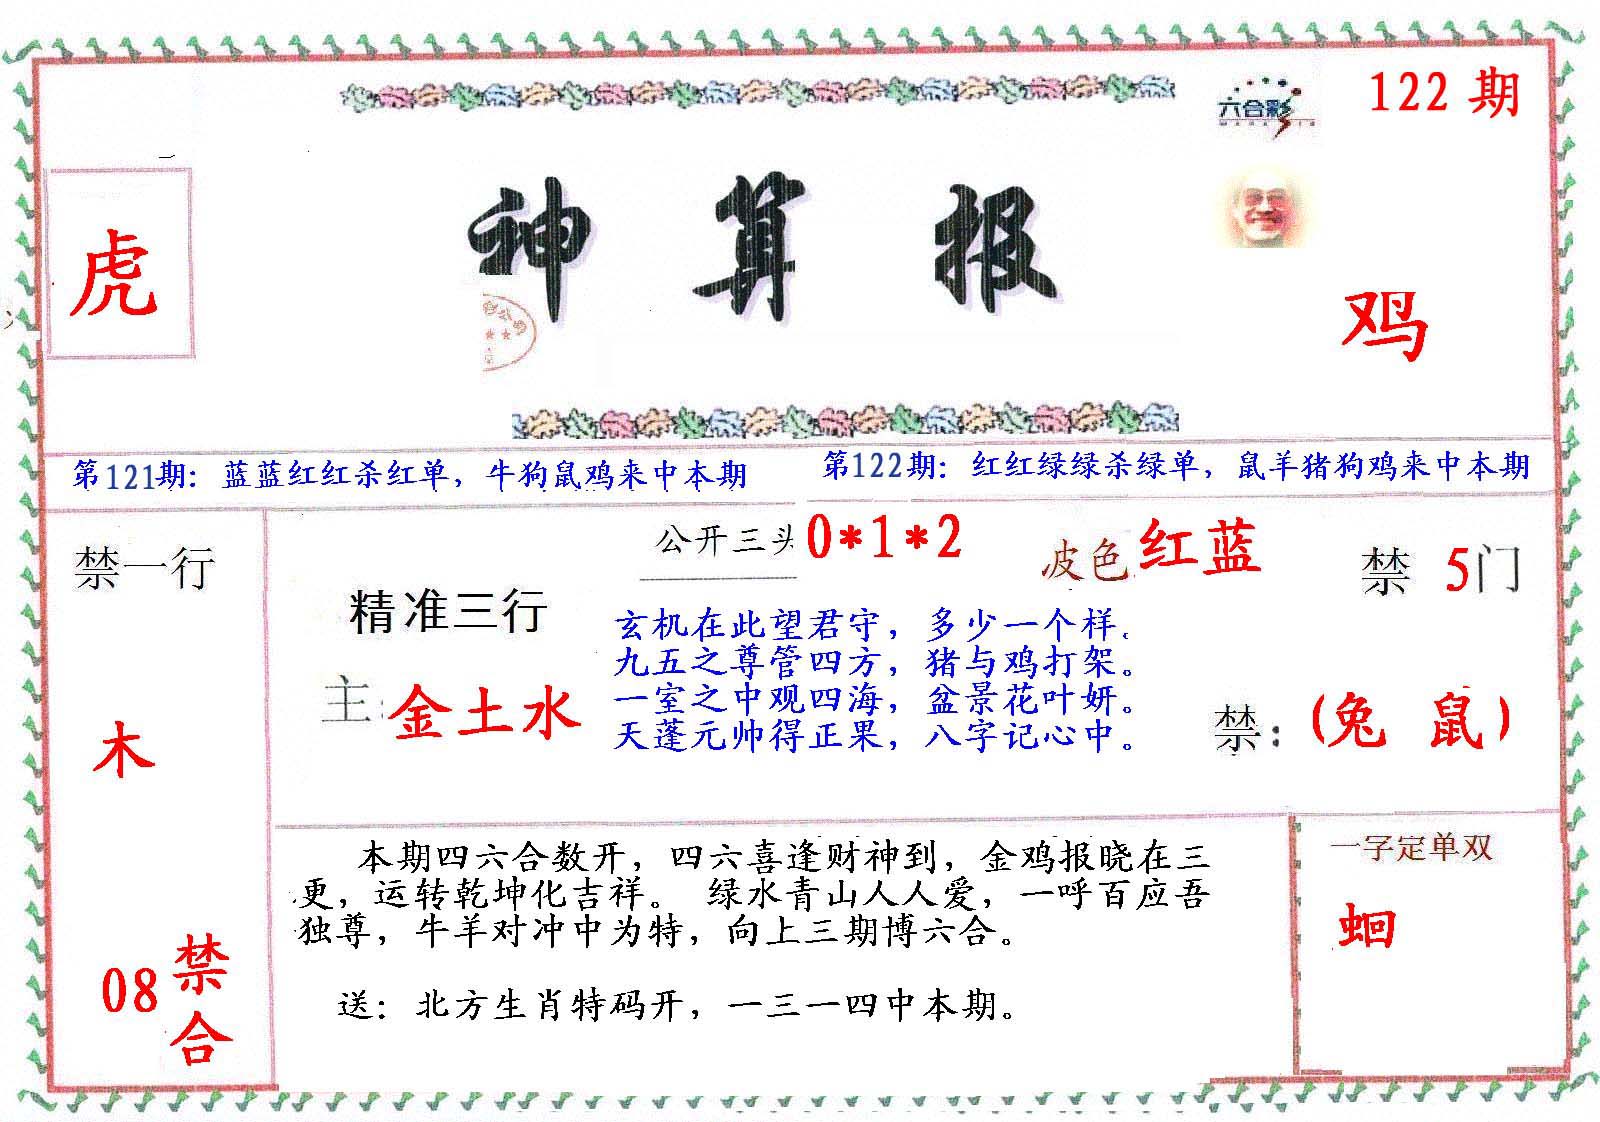 六合彩
122 期
虎
神算报
鸡
第121期：蓝蓝红红杀红单，牛狗鼠鸡来中本期
第122期：红红绿绿杀绿单，鼠羊猪狗鸡来中本期
禁一行
木
08 禁合
公开三头 0*1*2
波色 红蓝
禁 5门
精准三行
主：金土水
玄机在此望君守，多少一个样。
九五之尊管四方，猪与鸡打架。
一室之中观四海，盆景花叶妍。
天蓬元帅得正果，八字记心中。
禁：（兔 鼠）
本期四六合数开，四六喜逢财神到，金鸡报晓在三
更，运转乾坤化吉祥。 绿水青山人人爱，一呼百应吾
独尊，牛羊对冲中为特，向上三期博六合。
送：北方生肖特码开，一三一四中本期。
一字定单双
蛔